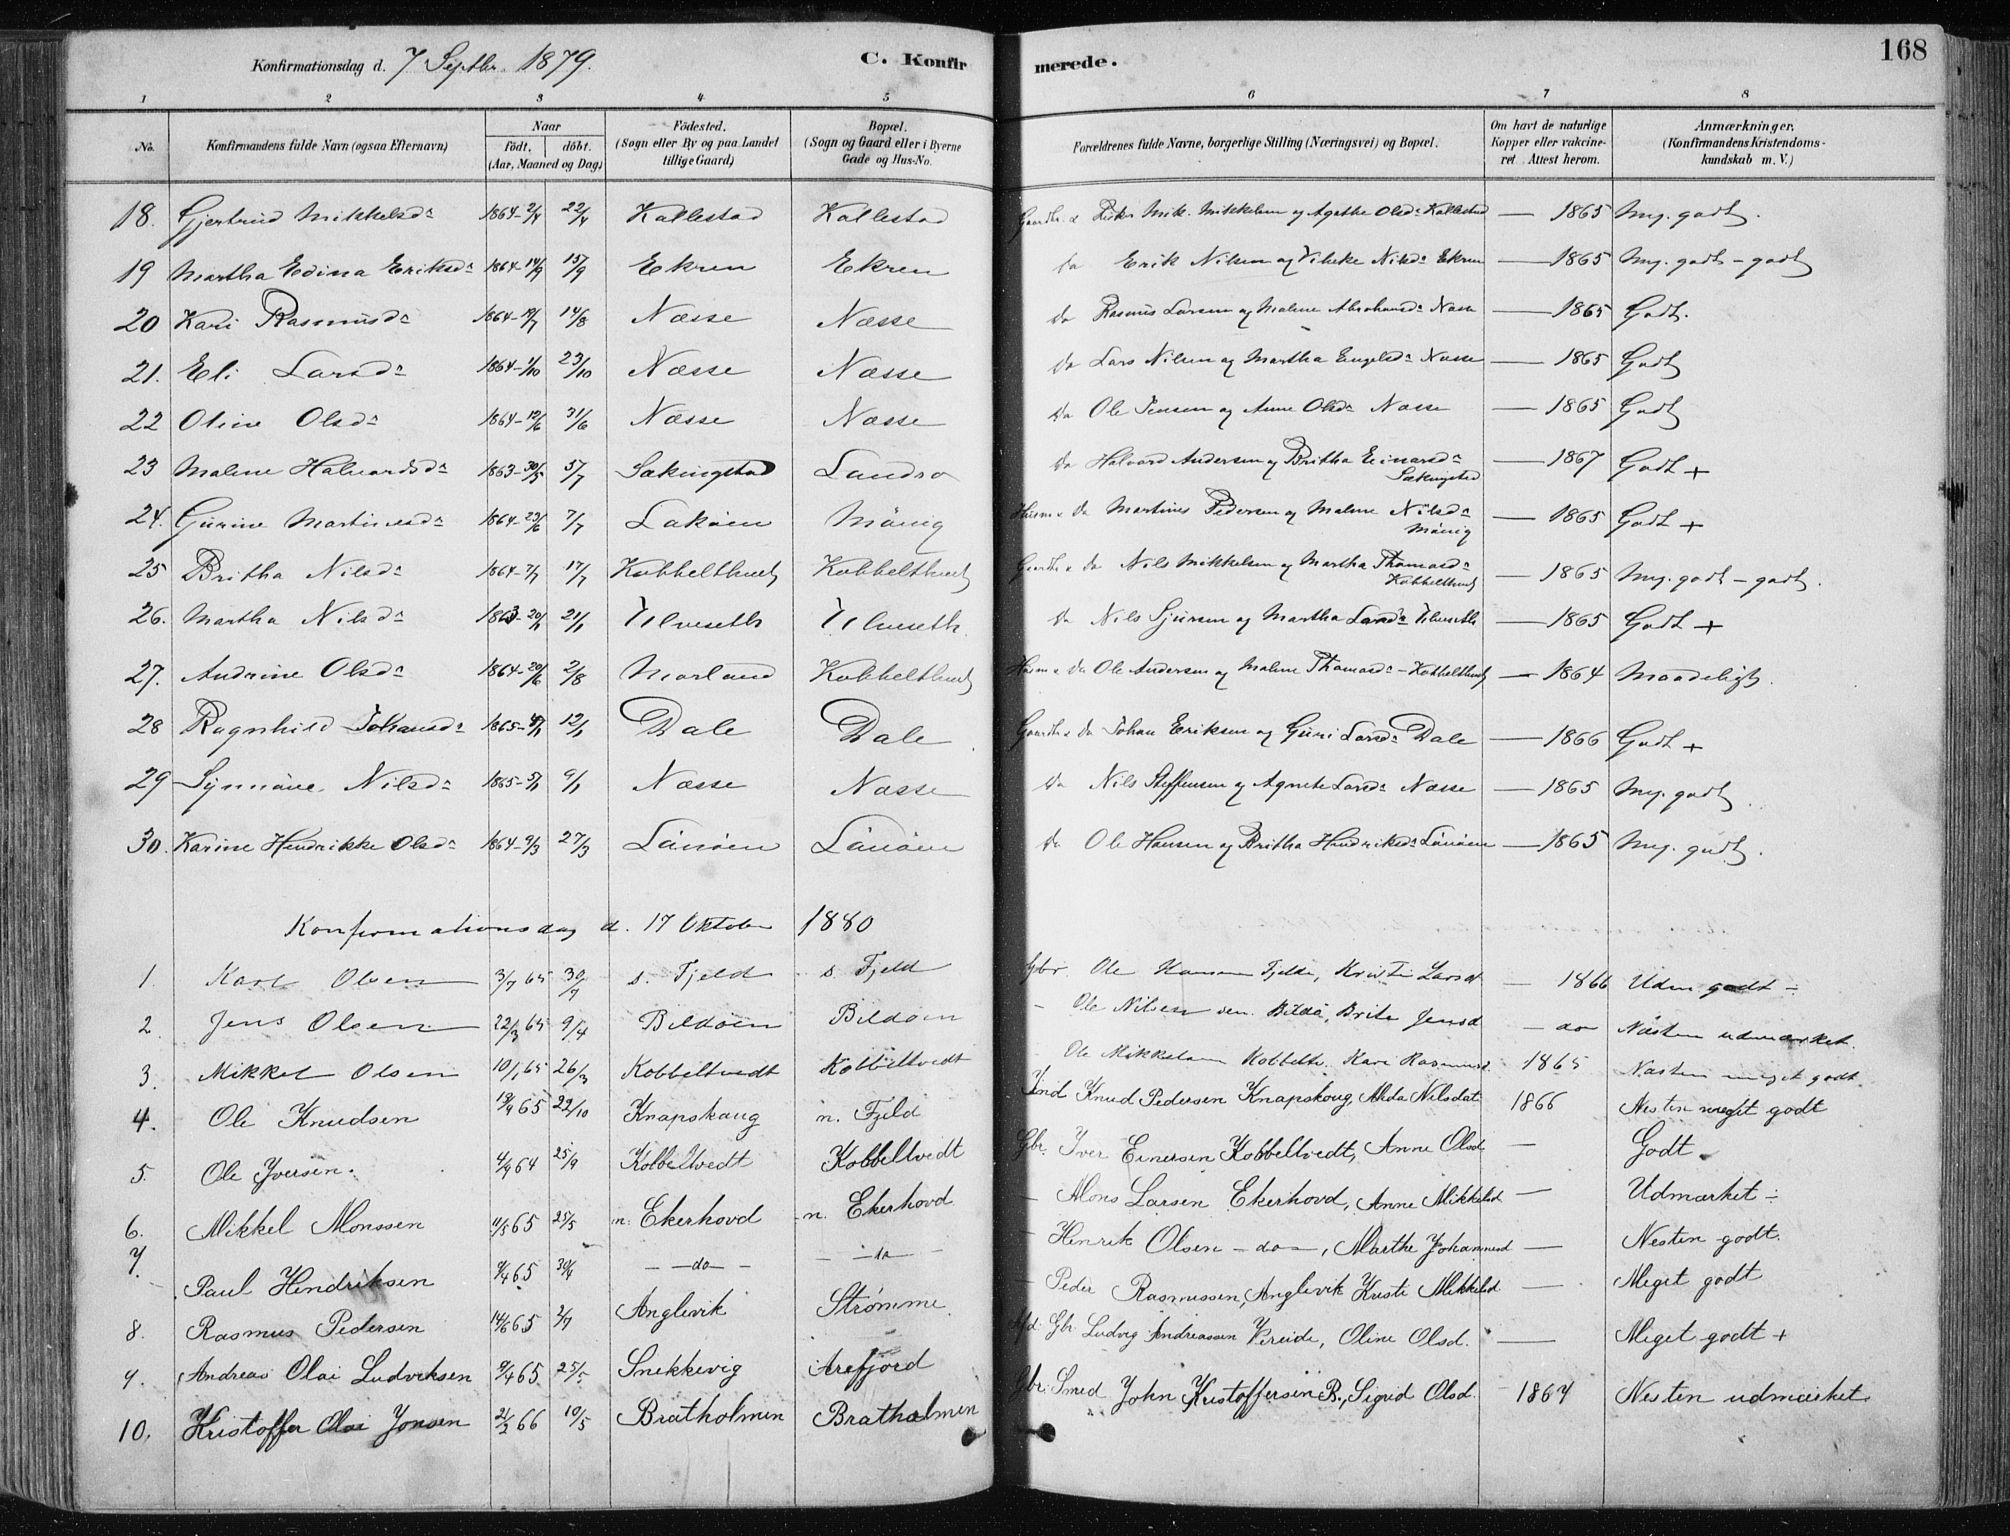 Konfirmationsdag d. 7 Septbr. 1879.
C. Konfirmerede.
168
1 2 3 4 5 6 7 8
No. Konfirmandens fulde Navn (ogsaa Efternavn) Naar født, døbt. (Aar, Maaned og Dag) Fødested. (Sogn eller By og paa Landet tillige Gaard) Bopæl. (Sogn og Gaard eller i Byerne Gade og Hus-No. Forældrenes fulde Navne, borgerlige Stilling (Næringsvei) og Bopæl. Om havt de naturlige Kopper eller vakcineret. Attest herom. Anmærkninger. (Konfirmandens Kristendomskundskab m. V.)
18. Gjertrud Mikkelsd. 1864-2/4 22/4 Kallestad Kallestad Mik. Mikkelsen og Agathe Olsd. Kallestad — 1865 Mg. godt.
19 Martha Edina Eriksd. 1864-14/9 15/9 Ekren Ekren da Erik Nilsen og Vibeke Nilsd. Ekren — 1865 Mg. godt - godt
20 Kari Rasmusd. 1864-19/7 14/8 Næsse Næsse Da Rasmus Larsen og Malene Abrahamsd. Næsse — 1865 Godt.
21. Eli Larsd. 1864-1/10 23/10 Næsse Næsse Da Lars Nilsen og Martha Engelsd. Næsse — 1865 Godt
22 Oline Olsd. 1864-12/6 31/6 Næsse Næsse Da Ole Jensen og Anne Olsd. Næsse — 1865 Godt
23 Malene Halvardsd. 1863-30/5 5/7 Sækingstad Landro Da Halvard Andersen og Britha Einarsd. Sækingstad — 1867 Godt +
24. Gurine Martinusd. 1864-23/6 7/7 Lokøen Møvig Husm. Da Martinus Pedersen og Malene Nilsd. Møvig — 1865 Godt +
25 Britha Nilsd. 1864-7/7 17/7 Kobbelthvedt Kobbelthvedt Gaardbr. Da Nils Mikkelsen og Martha Thomasd. Kobbelthvedt — 1865 Mg. godt - godt.
26. Martha Nilsd. 1863-20/1 21/1 Ulveseth Ulveseth Da Nils Sjursen og Martha Larsd. Ulveseth — 1865 Godt +
27. Andrine Olsd. 1864-20/6 2/8 Morland Kobbelthvedt Husm. Da Ole Andersen og Malene Thomasd. - Kobbelthvedt — 1864 Maadeligt.
28 Ragnhild Johansd. 1865- 12/1 Dale Dale Gaardbr. Da Johan Eriksen og Guri Larsd. Dale — 1866 Godt +
29 Synnøve Nilsd. 1865-5/1 9/1 Næsse Næsse Da Nils Steffensen og Agnete Larsd. Næsse — 1865 Mg. godt.
30. Karine Hendrikke Olsd. 1864-9/3 27/3 Lønøen Lønøen Da Ole Hansen og Britha Hendriksd. Lønøen — 1865 Mg. godt.
Konfirmationsdag d. 17 Oktober 1880
1. Karl Olsen 3/7 65 30/7 s. Fjeld s. Fjeld Gbr. Ole Hansen Fjelde, Kristi Larsd — 1866 Uden godt -
2. Jens Olsen 22/3 65 9/4 Bildøen Bildøen - Ole Nilsen sen. Bildø, Brite Jensd — do Næsten udmærket.
3. Mikkel Olsen 10/1 65 26/3 Kobbeltvedt Kobbeltvedt Ole Mikkelsen Kobbeltv. Kari Rasmusd. 1865 Næsten meget godt
4. Ole Knudsen 19/9 65 22/10 Knapskaug n. Fjeld Ind Knud Pedersen Knapskoug, Alida Nilsdat 1866 Nesten meget godt
5. Ole Iversen. 4/9 64 25/9 Kobbeltvedt Kobbeltvedt Gbr. Iver Einersen Kobbeltvedt, Anne Olsd — Godt
6. Mikkel Monssen 4/5 65 25/5 n. Ekerhovd n. Ekerhovd - Mons Larsen Ekerhovd, Anne Mikkelsd — Udmærket -
7. Paul Hendriksen 9/4 65 30/4 — do — — do — - Henrik Olsen — do —, Marthe Johannesd — Nesten godt.
8. Rasmus Pedersen 14/6 65 2/7 Anglevik Strømme - Peder Rasmussen, Anglevik Kristi Mikkelsd — Meget godt
9. Andreas Olai Ludviksen 9/4 65 25/5 Snekkevig Arefjord Gbr. Ludvig Andreassen Vereide, Oline Olsd. — Meget godt +
10. Kristoffer Olai Jonsen 21/2 66 10/5 Bratholmen Bratholmen Gbr. Smed John Kristoffersen B., Sigrid Olsd. 1867 Nesten udmærket